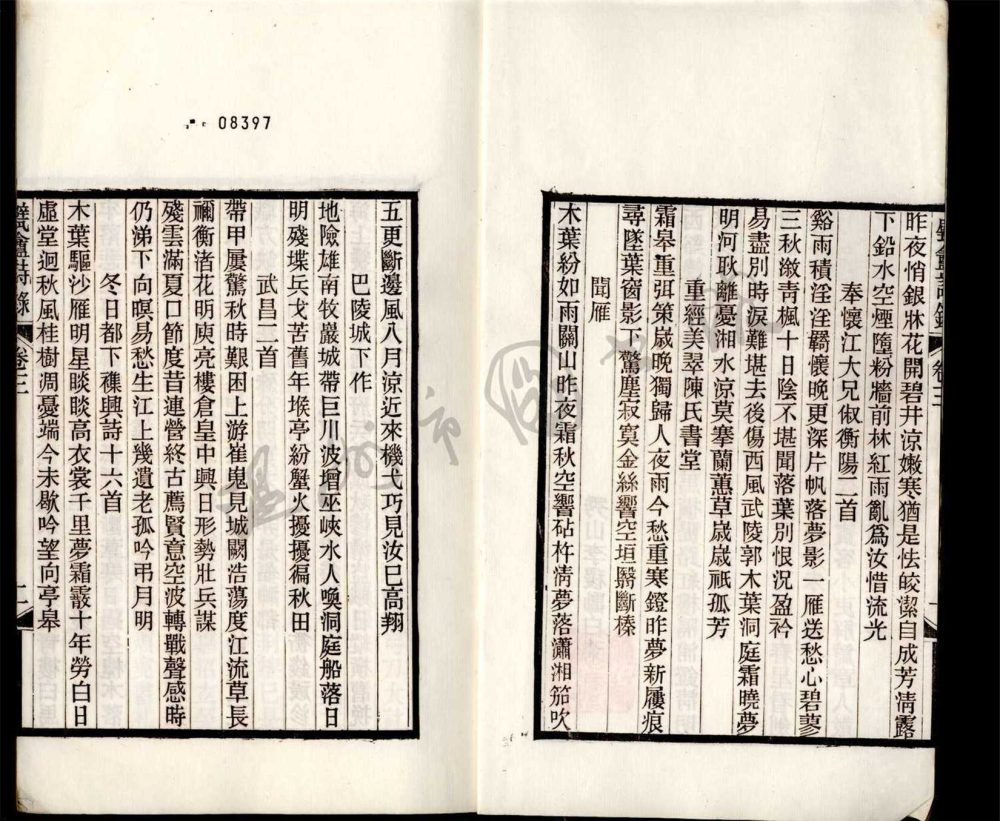 昨夜悄銀牀花開碧井涼嫩寒猶是怯皎潔自成芳情露
下鉛水空煙墮粉牆前林紅雨亂爲汝惜流光
奉懷江大兄俶衡陽二首
谿雨積淫淫羇懷晚更深片帆落夢影一雁送愁心碧蓼
三秋潋青楓十日陰不堪聞落葉別恨況盈衿
易盡別時淚難堪去後傷西風武陵郭木葉洞庭霜曉夢
明河耿離憂湘水涼莫搴蘭蕙草歲歲祇孤芳
重經美翠陳氏書堂
霜皋重弭策歲晚獨歸人夜雨今愁重寒鐙昨夢新屨痕
尋墜葉窗影下驚塵寂寞金絲響空垣翳斷榛
聞雁
木葉紛如雨關山昨夜霜秋空響砧杵淸夢落瀟湘笳吹
卷三
08397
五更斷邊風八月涼近來機弋巧見汝已高翔
巴陵城下作
地險雄南牧嚴城帶巨川波增巫峽水人喚洞庭船落日
明殘堞兵戈苦舊年堠亭紛蟹火擾擾徧秋田
武昌二首
帶甲屢驚秋時艱困上游崔嵬見城闕浩蕩度江流草長
禰衡渚花明庾亮樓倉皇中興日形勢壯兵謀
殘雲滿夏口節度昔連營終古薦賢意空波轉戰聲感時
仍涕下向暝易愁生江上幾遺老孤吟弔月明
冬日都下襍興詩十六首
木葉驅沙雁明星睒睒高衣裳千里夢霜霰十年勞白日
虛堂迥秋風桂樹凋憂端今未歇吟望向亭皋
詩錄 卷三
二